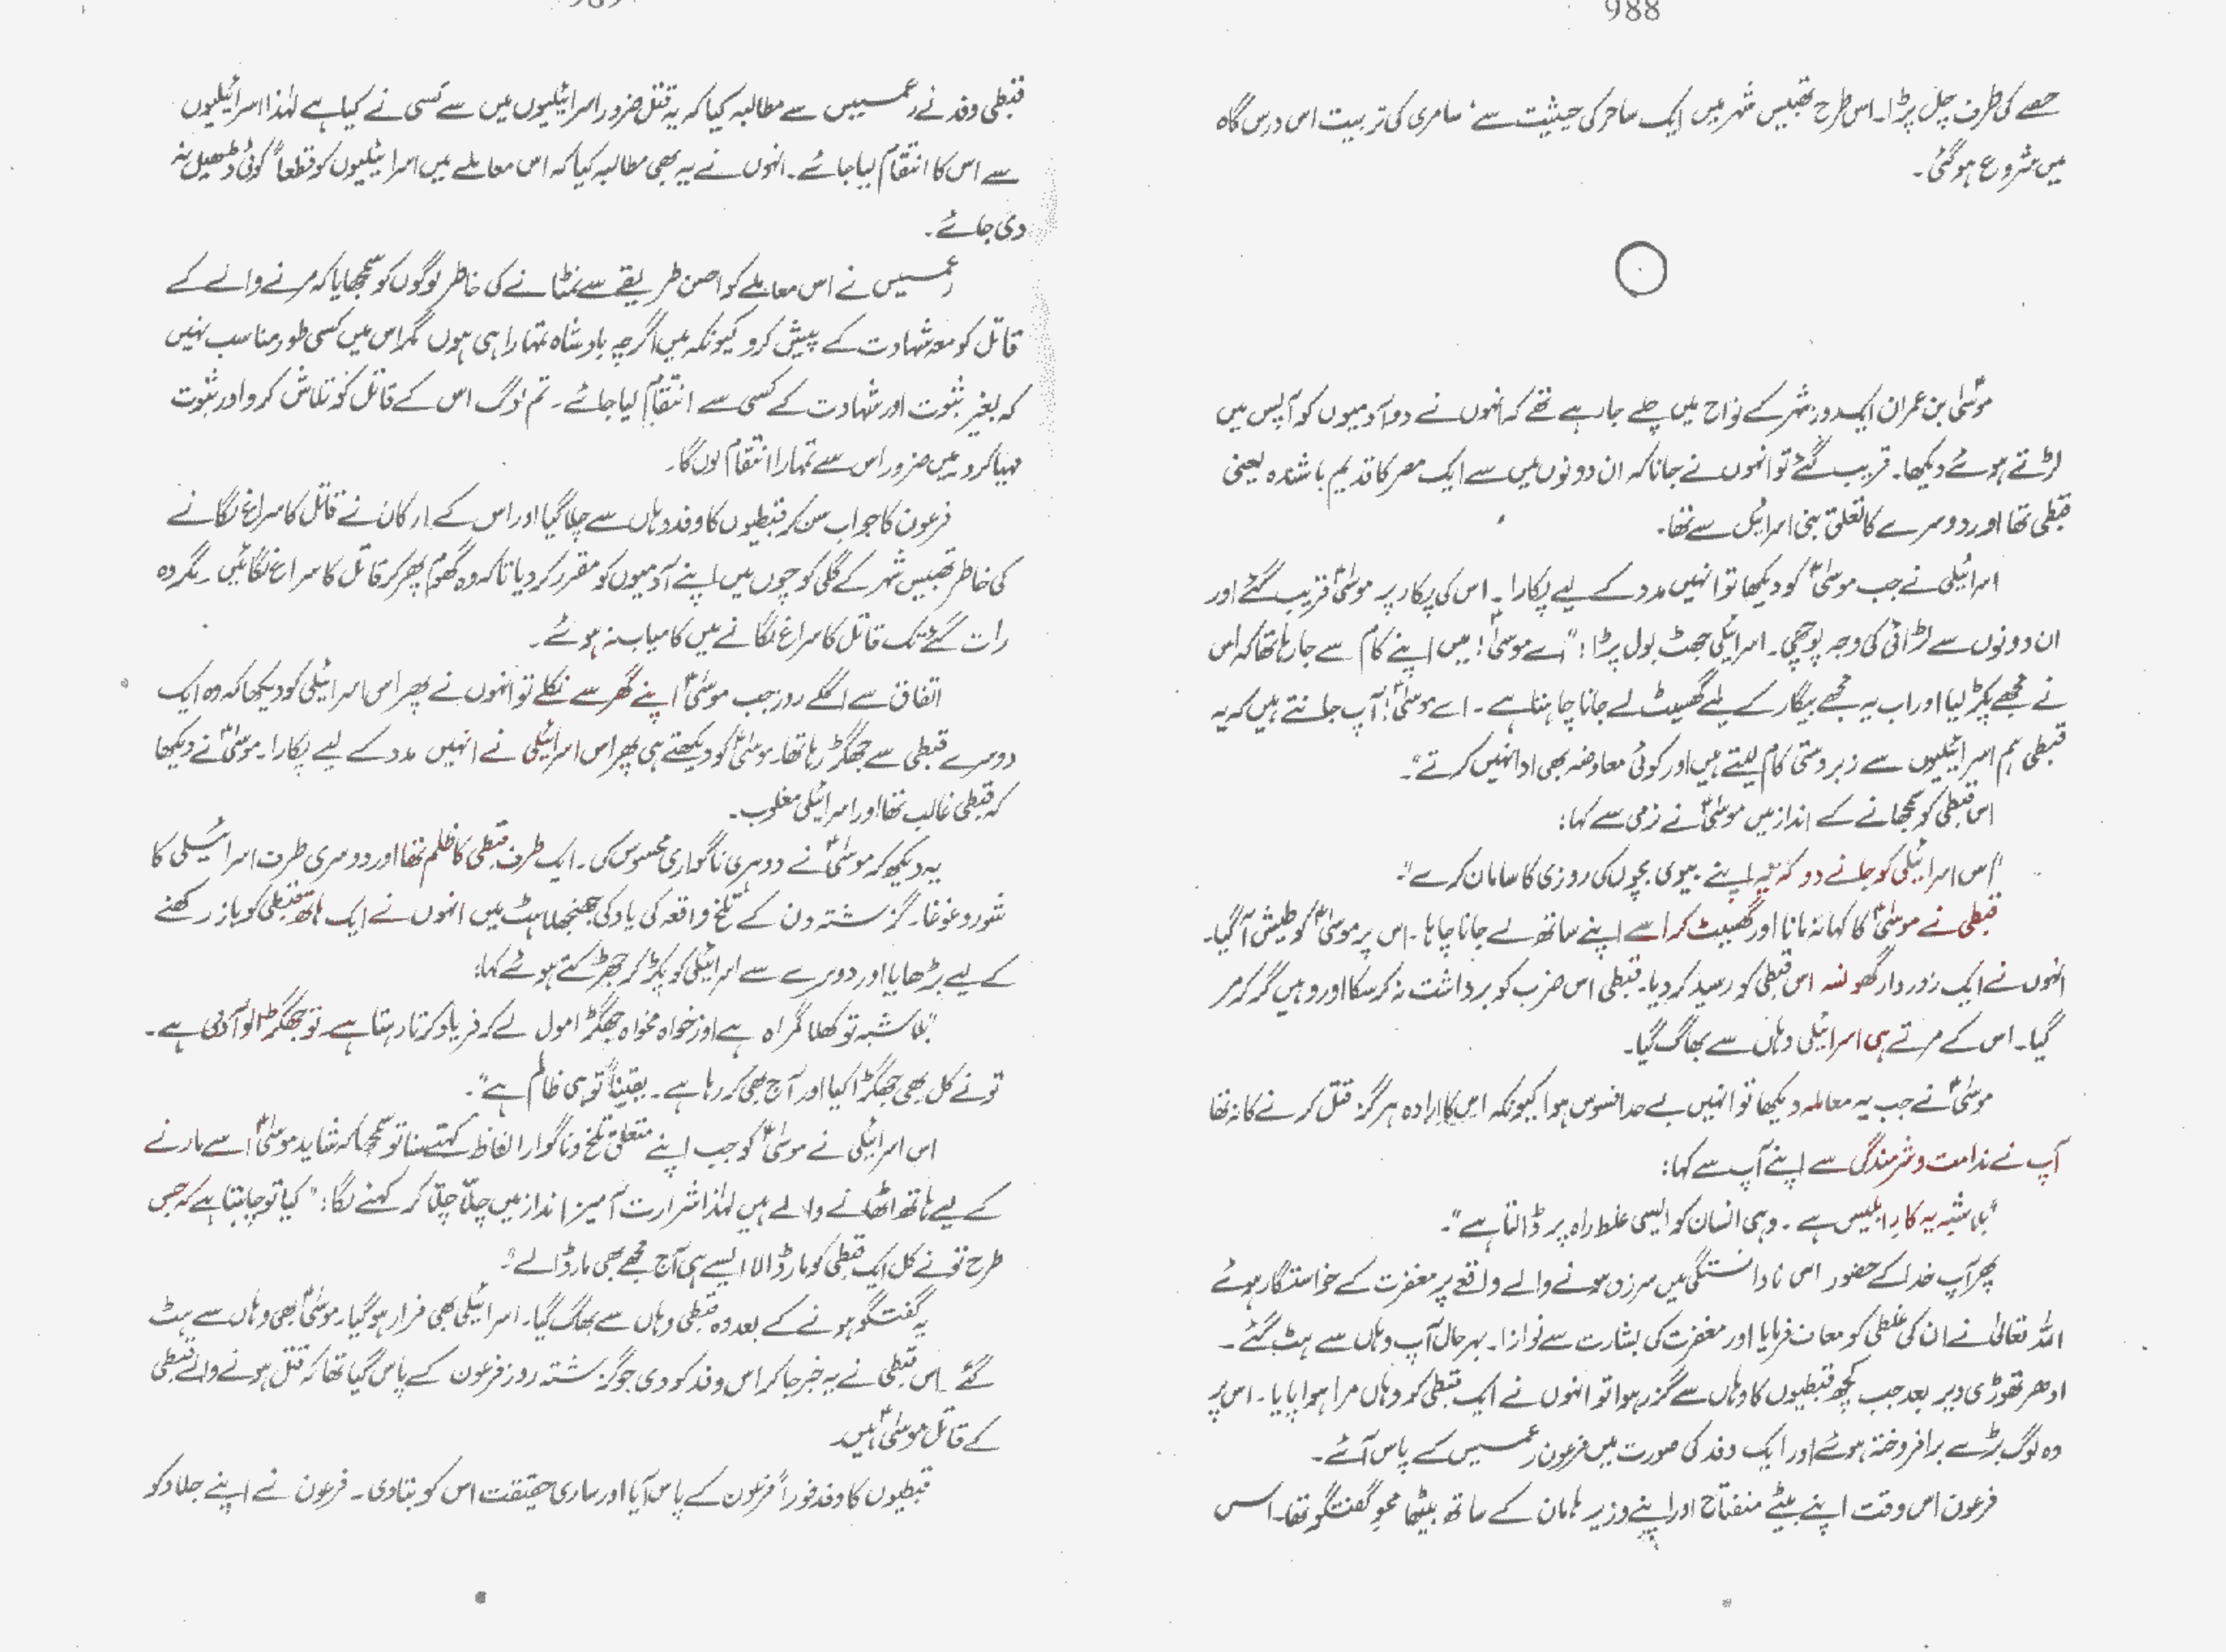 988
حصے کی طرف چل پڑا۔ اس طرح تھیبس شہر میں ایک ساحر کی حیثیت سے سامری کی تربیت اس درس گاہ
میں شروع ہو گئی۔
موسیٰؑ بن عمران ایک روز شہر کے نواح میں چلے جا رہے تھے کہ انہوں نے دو آدمیوں کو آپس میں
لڑتے ہوئے دیکھا۔ قریب گئے تو انہوں نے جانا کہ ان دونوں میں سے ایک مصر کا قدیم باشندہ یعنی
قبطی تھا اور دوسرے کا تعلق بنی اسرائیل سے تھا۔
اسرائیلی نے جب موسیٰؑ کو دیکھا تو انہیں مدد کے لیے پکارا۔ اس کی پکار پر موسیٰؑ قریب گئے اور
ان دونوں سے لڑائی کی وجہ پوچھی۔ اسرائیلی جھٹ بول پڑا: "اے موسیٰؑ! میں اپنے کام سے جا رہا تھا کہ اس
نے مجھے پکڑ لیا اور اب یہ مجھے بیگار کے لیے گھسیٹ لے جانا چاہتا ہے۔ اے موسیٰؑ! آپ جانتے ہیں کہ یہ
قبطی ہم اسرائیلیوں سے زبردستی کام لیتے ہیں اور کوئی معاوضہ بھی ادا نہیں کرتے"۔
اس قبطی کو سمجھانے کے انداز میں موسیٰؑ نے نرمی سے کہا:
"اس اسرائیلی کو جانے دو کہ یہ اپنے بیوی بچوں کی روزی کا سامان کرے"۔
قبطی نے موسیٰؑ کا کہا نہ مانا اور گھسیٹ کر اسے اپنے ساتھ لے جانا چاہا۔ اس پر موسیٰؑ کو طیش آ گیا۔
انہوں نے ایک زور دار گھونسہ اس قبطی کو رسید کر دیا۔ قبطی اس ضرب کو برداشت نہ کر سکا اور وہیں گر کر مر
گیا۔ اس کے مرتے ہی اسرائیلی وہاں سے بھاگ گیا۔
موسیٰؑ نے جب یہ معاملہ دیکھا تو انہیں بے حد افسوس ہوا کیونکہ اس کا ارادہ ہرگز قتل کرنے کا نہ تھا
آپ نے ندامت و شرمندگی سے اپنے آپ سے کہا:
"بلاشبہ یہ کارِ ابلیس ہے۔ وہی انسان کو ایسی غلط راہ پر ڈالتا ہے"۔
پھر آپ خدا کے حضور اس نادانستگی میں سرزد ہونے والے واقعے پر مغفرت کے خواستگار ہوئے
اللہ تعالیٰ نے ان کی غلطی کو معاف فرمایا اور مغفرت کی بشارت سے نوازا۔ بہرحال آپ وہاں سے ہٹ گئے۔
ادھر تھوڑی دیر بعد جب کچھ قبطیوں کا وہاں سے گزر ہوا تو انہوں نے ایک قبطی کو وہاں مرا ہوا پایا۔ اس پر
وہ لوگ بڑے برافروختہ ہوئے اور ایک وفد کی صورت میں فرعون رعمسیس کے پاس آئے۔
فرعون اس وقت اپنے بیٹے منفتاح اور اپنے وزیر ہامان کے ساتھ بیٹھا محوِ گفتگو تھا۔ اس
قبطی وفد نے رعمسیس سے مطالبہ کیا کہ یہ قتل ضرور اسرائیلیوں میں سے کسی نے کیا ہے لہٰذا اسرائیلیوں
سے اس کا انتقام لیا جائے۔ انہوں نے یہ بھی مطالبہ کیا کہ اس معاملے میں اسرائیلیوں کو قطعاً کوئی ڈھیل نہ
دی جائے۔
رعمسیس نے اس معاملے کو احسن طریقے سے نمٹانے کی خاطر لوگوں کو سمجھایا کہ مرنے والے کے
قاتل کو معہ شہادت کے پیش کرو کیونکہ میں اگرچہ بادشاہ تمہارا ہی ہوں مگر اس میں کسی طور مناسب نہیں
کہ بغیر ثبوت اور شہادت کے کسی سے انتقام لیا جائے۔ تم لوگ اس کے قاتل کو تلاش کرو اور ثبوت
مہیا کرو میں ضرور اس سے تمہارا انتقام لوں گا۔
فرعون کا جواب سن کر قبطیوں کا وفد وہاں سے چلا گیا اور اس کے ارکان نے قاتل کا سراغ لگانے
کی خاطر تھیبس شہر کے گلی کوچوں میں اپنے آدمیوں کو مقرر کر دیا تاکہ وہ گھوم پھر کر قاتل کا سراغ لگائیں۔ مگر وہ
رات گئے تک قاتل کا سراغ لگانے میں کامیاب نہ ہوئے۔
اتفاق سے اگلے روز جب موسیٰؑ اپنے گھر سے نکلے تو انہوں نے پھر اس اسرائیلی کو دیکھا کہ وہ ایک
دوسرے قبطی سے جھگڑ رہا تھا۔ موسیٰؑ کو دیکھتے ہی پھر اس اسرائیلی نے انہیں مدد کے لیے پکارا۔ موسیٰؑ نے دیکھا
کہ قبطی غالب تھا اور اسرائیلی مغلوب۔
یہ دیکھ کر موسیٰؑ نے دوسری ناگواری محسوس کی۔ ایک طرف قبطی کا ظلم تھا اور دوسری طرف اسرائیلی کا
شور و غوغا۔ گزشتہ دن کے تلخ واقعہ کی یاد کی جھنجھلاہٹ میں انہوں نے ایک ہاتھ قبطی کو باز رکھنے
کے لیے بڑھایا اور دوسرے سے اسرائیلی کو پکڑ کر جھڑکتے ہوئے کہا:
"بلاشبہ تو کھلا گمراہ ہے اور خواہ مخواہ جھگڑا مول لے کر فریاد کرتا رہتا ہے۔ تو جھگڑالو آدمی ہے۔
تو نے کل بھی جھگڑا کیا اور آج بھی کر رہا ہے۔ یقیناً تو ہی ظالم ہے"۔
اس اسرائیلی نے موسیٰؑ کو جب اپنے متعلق تلخ و ناگوار الفاظ کہتے سنا تو سمجھا کہ شاید موسیٰؑ اسے مارنے
کے لیے ہاتھ اٹھانے والے ہیں لہٰذا شرارت آمیز انداز میں چلّا چلّا کر کہنے لگا: "کیا تو چاہتا ہے کہ جس
طرح تو نے کل ایک قبطی کو مار ڈالا ایسے ہی آج مجھے بھی مار ڈالے"۔
یہ گفتگو ہونے کے بعد وہ قبطی وہاں سے بھاگ گیا۔ اسرائیلی بھی فرار ہو گیا۔ موسیٰؑ بھی وہاں سے ہٹ
گئے۔ اس قبطی نے یہ خبر جا کر اس وفد کو دی جو گزشتہ روز فرعون کے پاس گیا تھا کہ قتل ہونے والے قبطی
کے قاتل موسیٰؑ ہیں۔
قبطیوں کا وفد فوراً فرعون کے پاس آیا اور ساری حقیقت اس کو بتا دی۔ فرعون نے اپنے جلاد کو